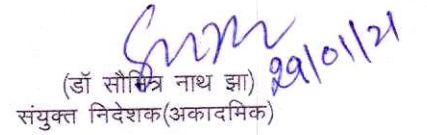 29/01/21
(डॉ सौमित्र नाथ झा)
संयुक्त निदेशक(अकादमिक)